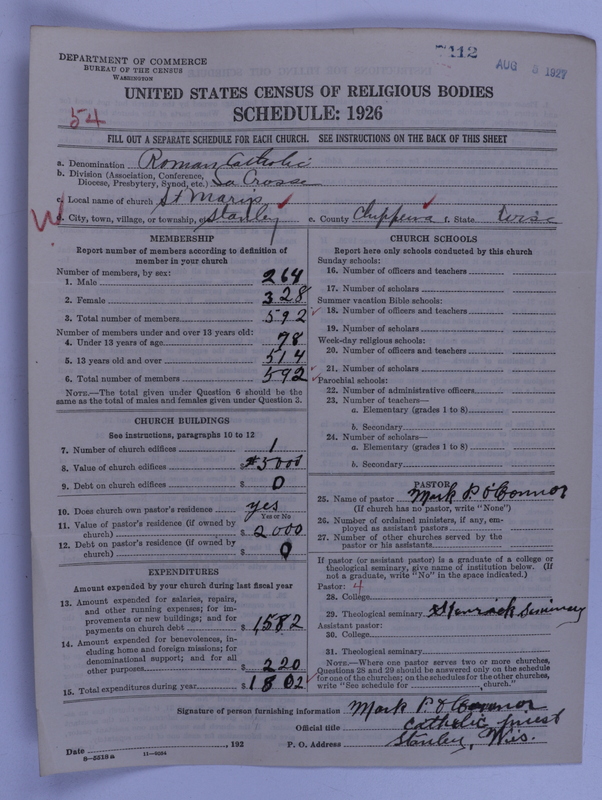 7112
AUG 5 1927
DEPARTMENT OF COMMERCE
BUREAU OF THE CENSUS
WASHINGTON
UNITED STATES CENSUS OF RELIGIOUS BODIES
SCHEDULE: 1926
54
FILL OUT A SEPARATE SCHEDULE FOR EACH CHURCH. SEE INSTRUCTIONS ON THE BACK OF THIS SHEET
a. Denomination Roman Catholic
b. Division (Association, Conference, Diocese, Presbytery, Synod, etc.) La Crosse
c. Local name of church St Marys
d. City, town, village, or township, etc. Stanley e. County Chippewa f. State Wisc
MEMBERSHIP
Report number of members according to definition of
member in your church
Number of members, by sex:
1. Male 264
2. Female 328
3. Total number of members 592
Number of members under and over 13 years old:
4. Under 13 years of age 78
5. 13 years old and over 514
6. Total number of members 592
NOTE.—The total given under Question 6 should be
same as the total of males and females given under Question 3.
CHURCH BUILDINGS
See instructions, paragraphs 10 to 12
7. Number of church edifices 1
8. Value of church edifices $5000
9. Debt on church edifices $ 0
10. Does church own pastor's residence? yes
Yes or No
11. Value of pastor's residence (if owned by
church) $ 2000
12. Debt on pastor's residence (if owned by
church) $ 0
EXPENDITURES
Amount expended by your church during last fiscal year
13. Amount expended for salaries, repairs,
and other running expenses; for im-
provements or new buildings; and for
payments on church debt $ 1582
14. Amount expended for benevolences, in-
cluding home and foreign missions; for
denominational support; and for all
other purposes $ 220
15. Total expenditures during year $ 1802
CHURCH SCHOOLS
Report here only schools conducted by this church
Sunday schools:
16. Number of officers and teachers
17. Number of scholars
Summer vacation Bible schools:
18. Number of officers and teachers
19. Number of scholars
Week-day religious schools:
20. Number of officers and teachers
21. Number of scholars
Parochial schools:
22. Number of administrative officers
23. Number of teachers—
a. Elementary (grades 1 to 8)
b. Secondary
24. Number of scholars—
a. Elementary (grades 1 to 8)
b. Secondary
PASTOR
25. Name of pastor Mark P O'Connor
(If church has no pastor, write "None")
26. Number of ordained ministers, if any, em-
ployed as assistant pastors
27. Number of other churches served by the
pastor or his assistants
If pastor (or assistant pastor) is a graduate of a college or
theological seminary, give name of institution below. (If
not a graduate, write "No" in the space indicated.)
Pastor: 4
28. College
29. Theological seminary Seminary
Assistant pastor:
30. College
31. Theological seminary
NOTE.—Where one pastor serves two or more churches,
Questions 28 and 29 should be answered only on the schedule
for one of the churches; on the schedules for the other churches,
write "See schedule for , church."
Signature of person furnishing information Mark P. O'Connor
Official title Catholic priest
Date , 192 P. O. Address Stanley, Wis.
8-5518a 11-9084